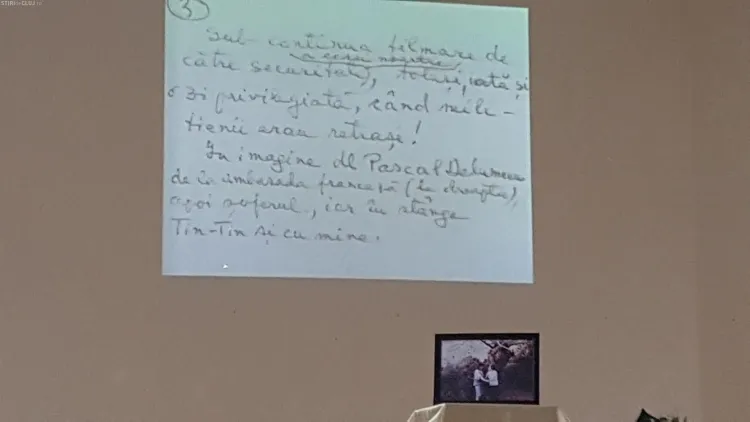 ȘTIRI de CLUJ.ro
3
Sub continua filmare de
a casei noastre
către securitate, totuși, iată și
o zi privilegiată, când mili-
țienii erau retrași!
In imagine dl Pascal Delumeau
de la ambasada franceză (la dreapta)
apoi șoferul, iar în stânga
Tin-Tin și cu mine.